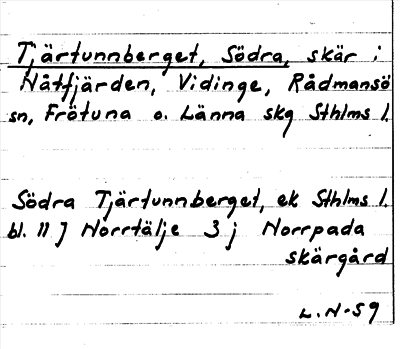 Tjärtunnberget, Södra, skär i
Håtfjärden, Vidinge, Rådmansö
sn, Frötuna o. Länna skg Sthlms l.
Södra Tjärtunnberget, ek Sthlms l.
bl. 11 J Norrtälje 3 j Norrpada
skärgård
L.H-59